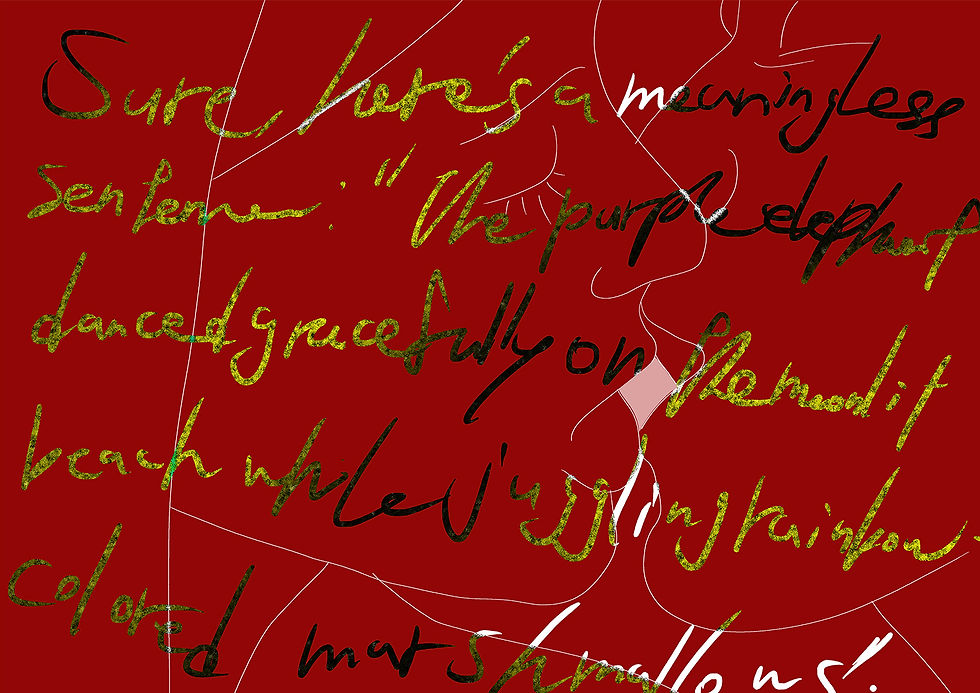 Sure, here's a meaningless
sentence: "The purple elephant
danced gracefully on the moonlit
beach while juggling rainbow-
colored marshmallows!"